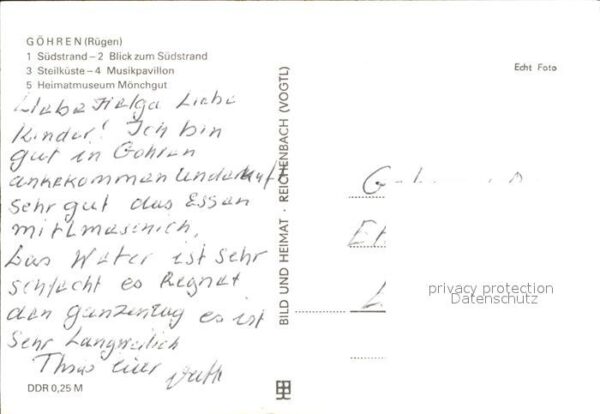 GÖHREN (Rügen)
1 Südstrand – 2 Blick zum Südstrand
3 Steilküste – 4 Musikpavillon
5 Heimatmuseum Mönchgut
Liebe Helga Liebe
Kinder! Ich bin
gut in Gohren
annekommen Underkunft
Sehr gut das Essen
mitlmasich,
Das Water ist Sehr
schlecht es Regnet
den ganzentag es ist
Sehr Langweilich
Thus euer
DDR 0,25 M
BILD UND HEIMAT · REICHENBACH (VOGTL)
Echt Foto
privacy protection
Datenschutz